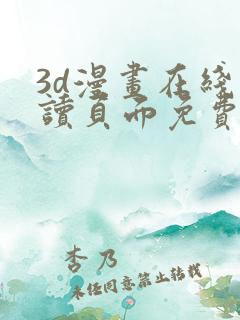 3d漫畫在綫
讀頁面免費
杏乃
未经同意禁止转载